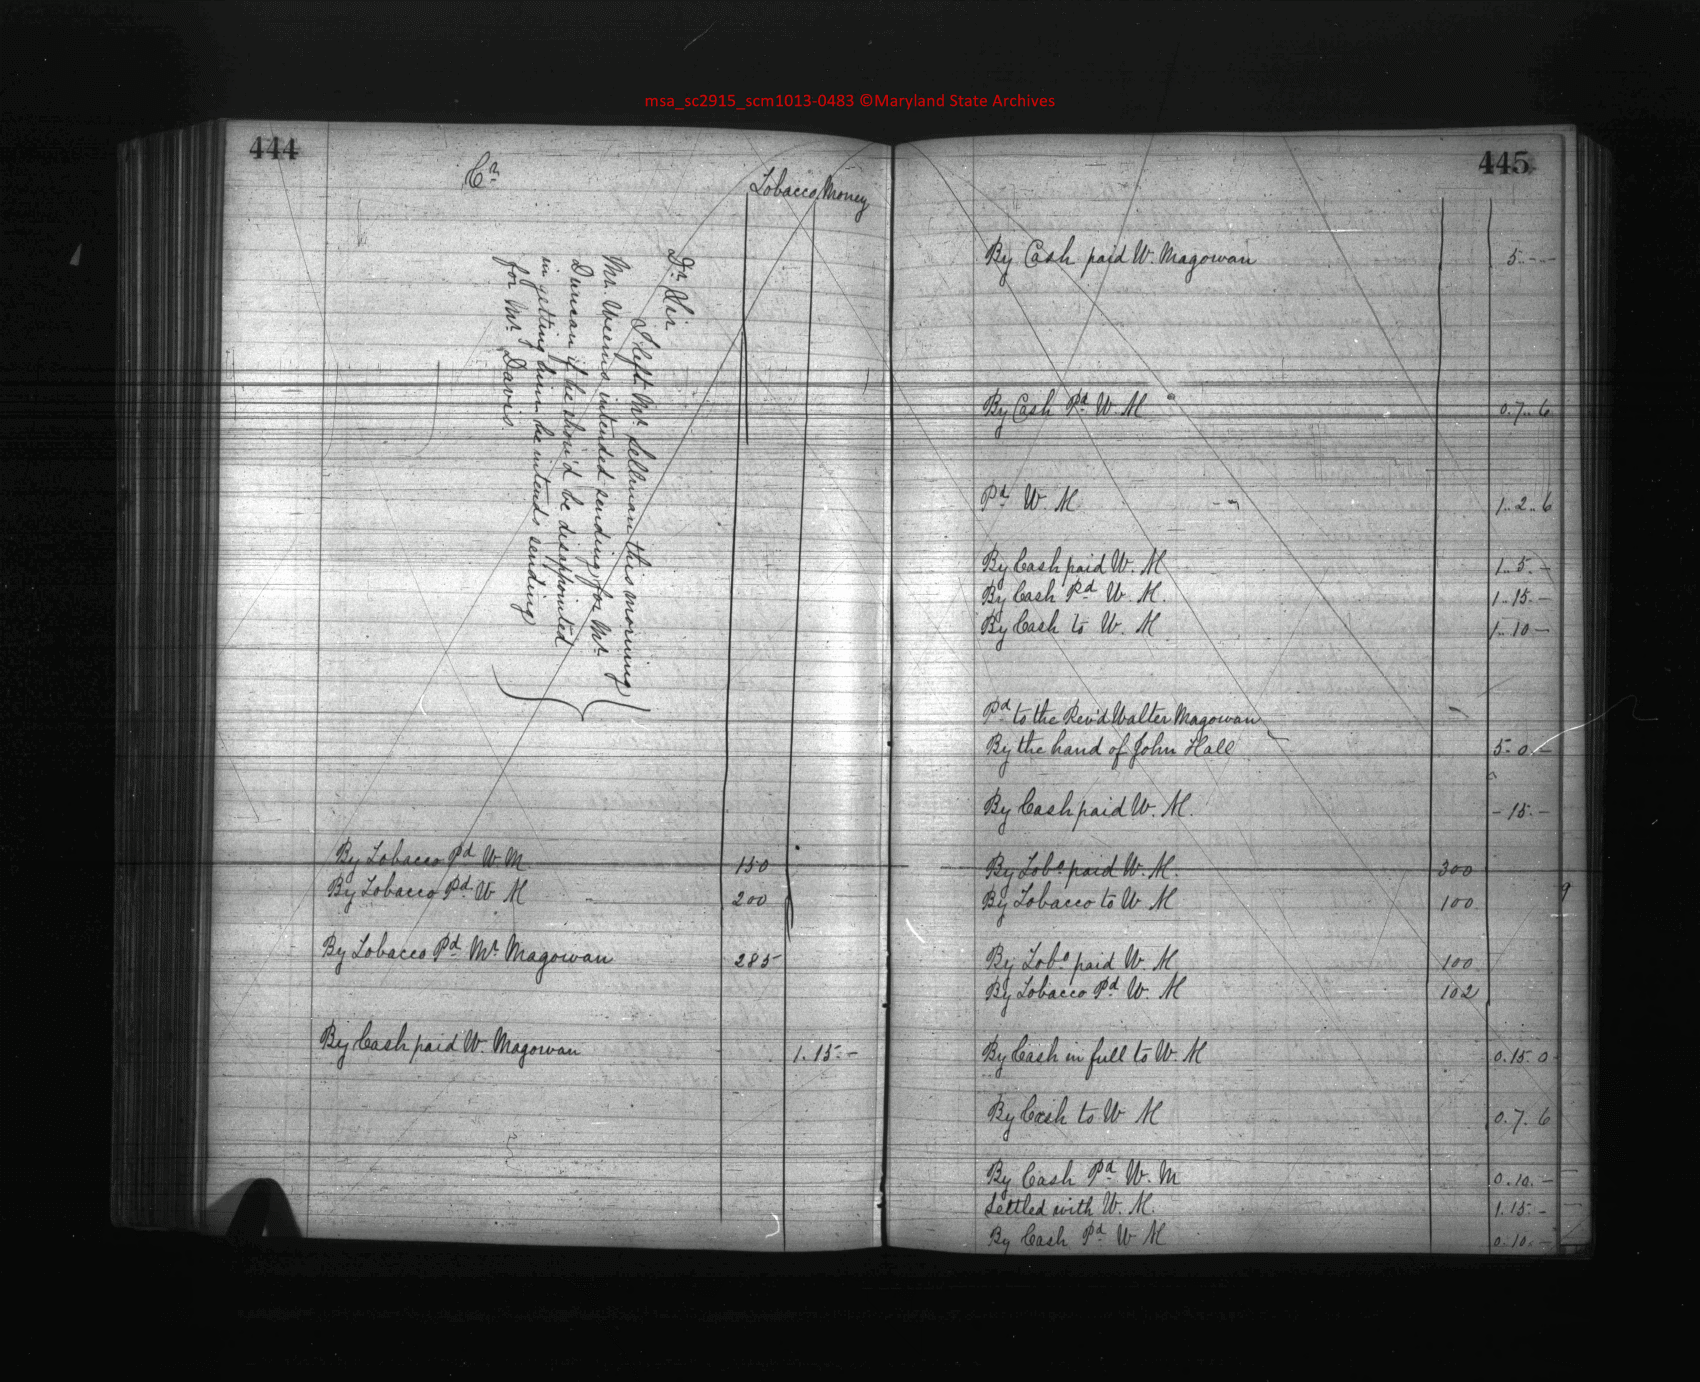 msa_sc2915_scm1013-0483 ©Maryland State Archives
444
Cr
Tobacco Money
Dr. Sir
I left Mr. Sellman this morning
Mr. Weems intended sending for Mr.
Duncan if he shou'd be disappointed
in getting him he intends sending
for Mr. Davis
By Tobacco Pd W. M. 150
By Tobacco Pd W M 200
By Tobacco Pd Mr Magowan 285
By Cash paid W. Magowan 1. 15. -
445
By Cash paid W. Magowan 5 - - -
By Cash Pd W. M 0. 7.. 6
Pd W. M. 1.. 2.. 6
By Cash paid W. M 1.. 5. -
By Cash Pd W. M. 1.. 15. -
By Cash to W. M 1.. 10 -
Pd to the Revd Walter Magowan
By the hand of John Hall 5. 0. -
By Cash paid W. M. - 15. -
By Tobo paid W. M. 300
By Tobacco to W M 100
By Tobo paid W. M 100
By Tobacco Pd W. M 102
By Cash in full to W. M 0. 15. 0
By Cash to W M 0. 7. 6
By Cash Pd W. M 0. 10. -
Settled with W. M. 1. 15. -
By Cash Pd W M 0. 10. -